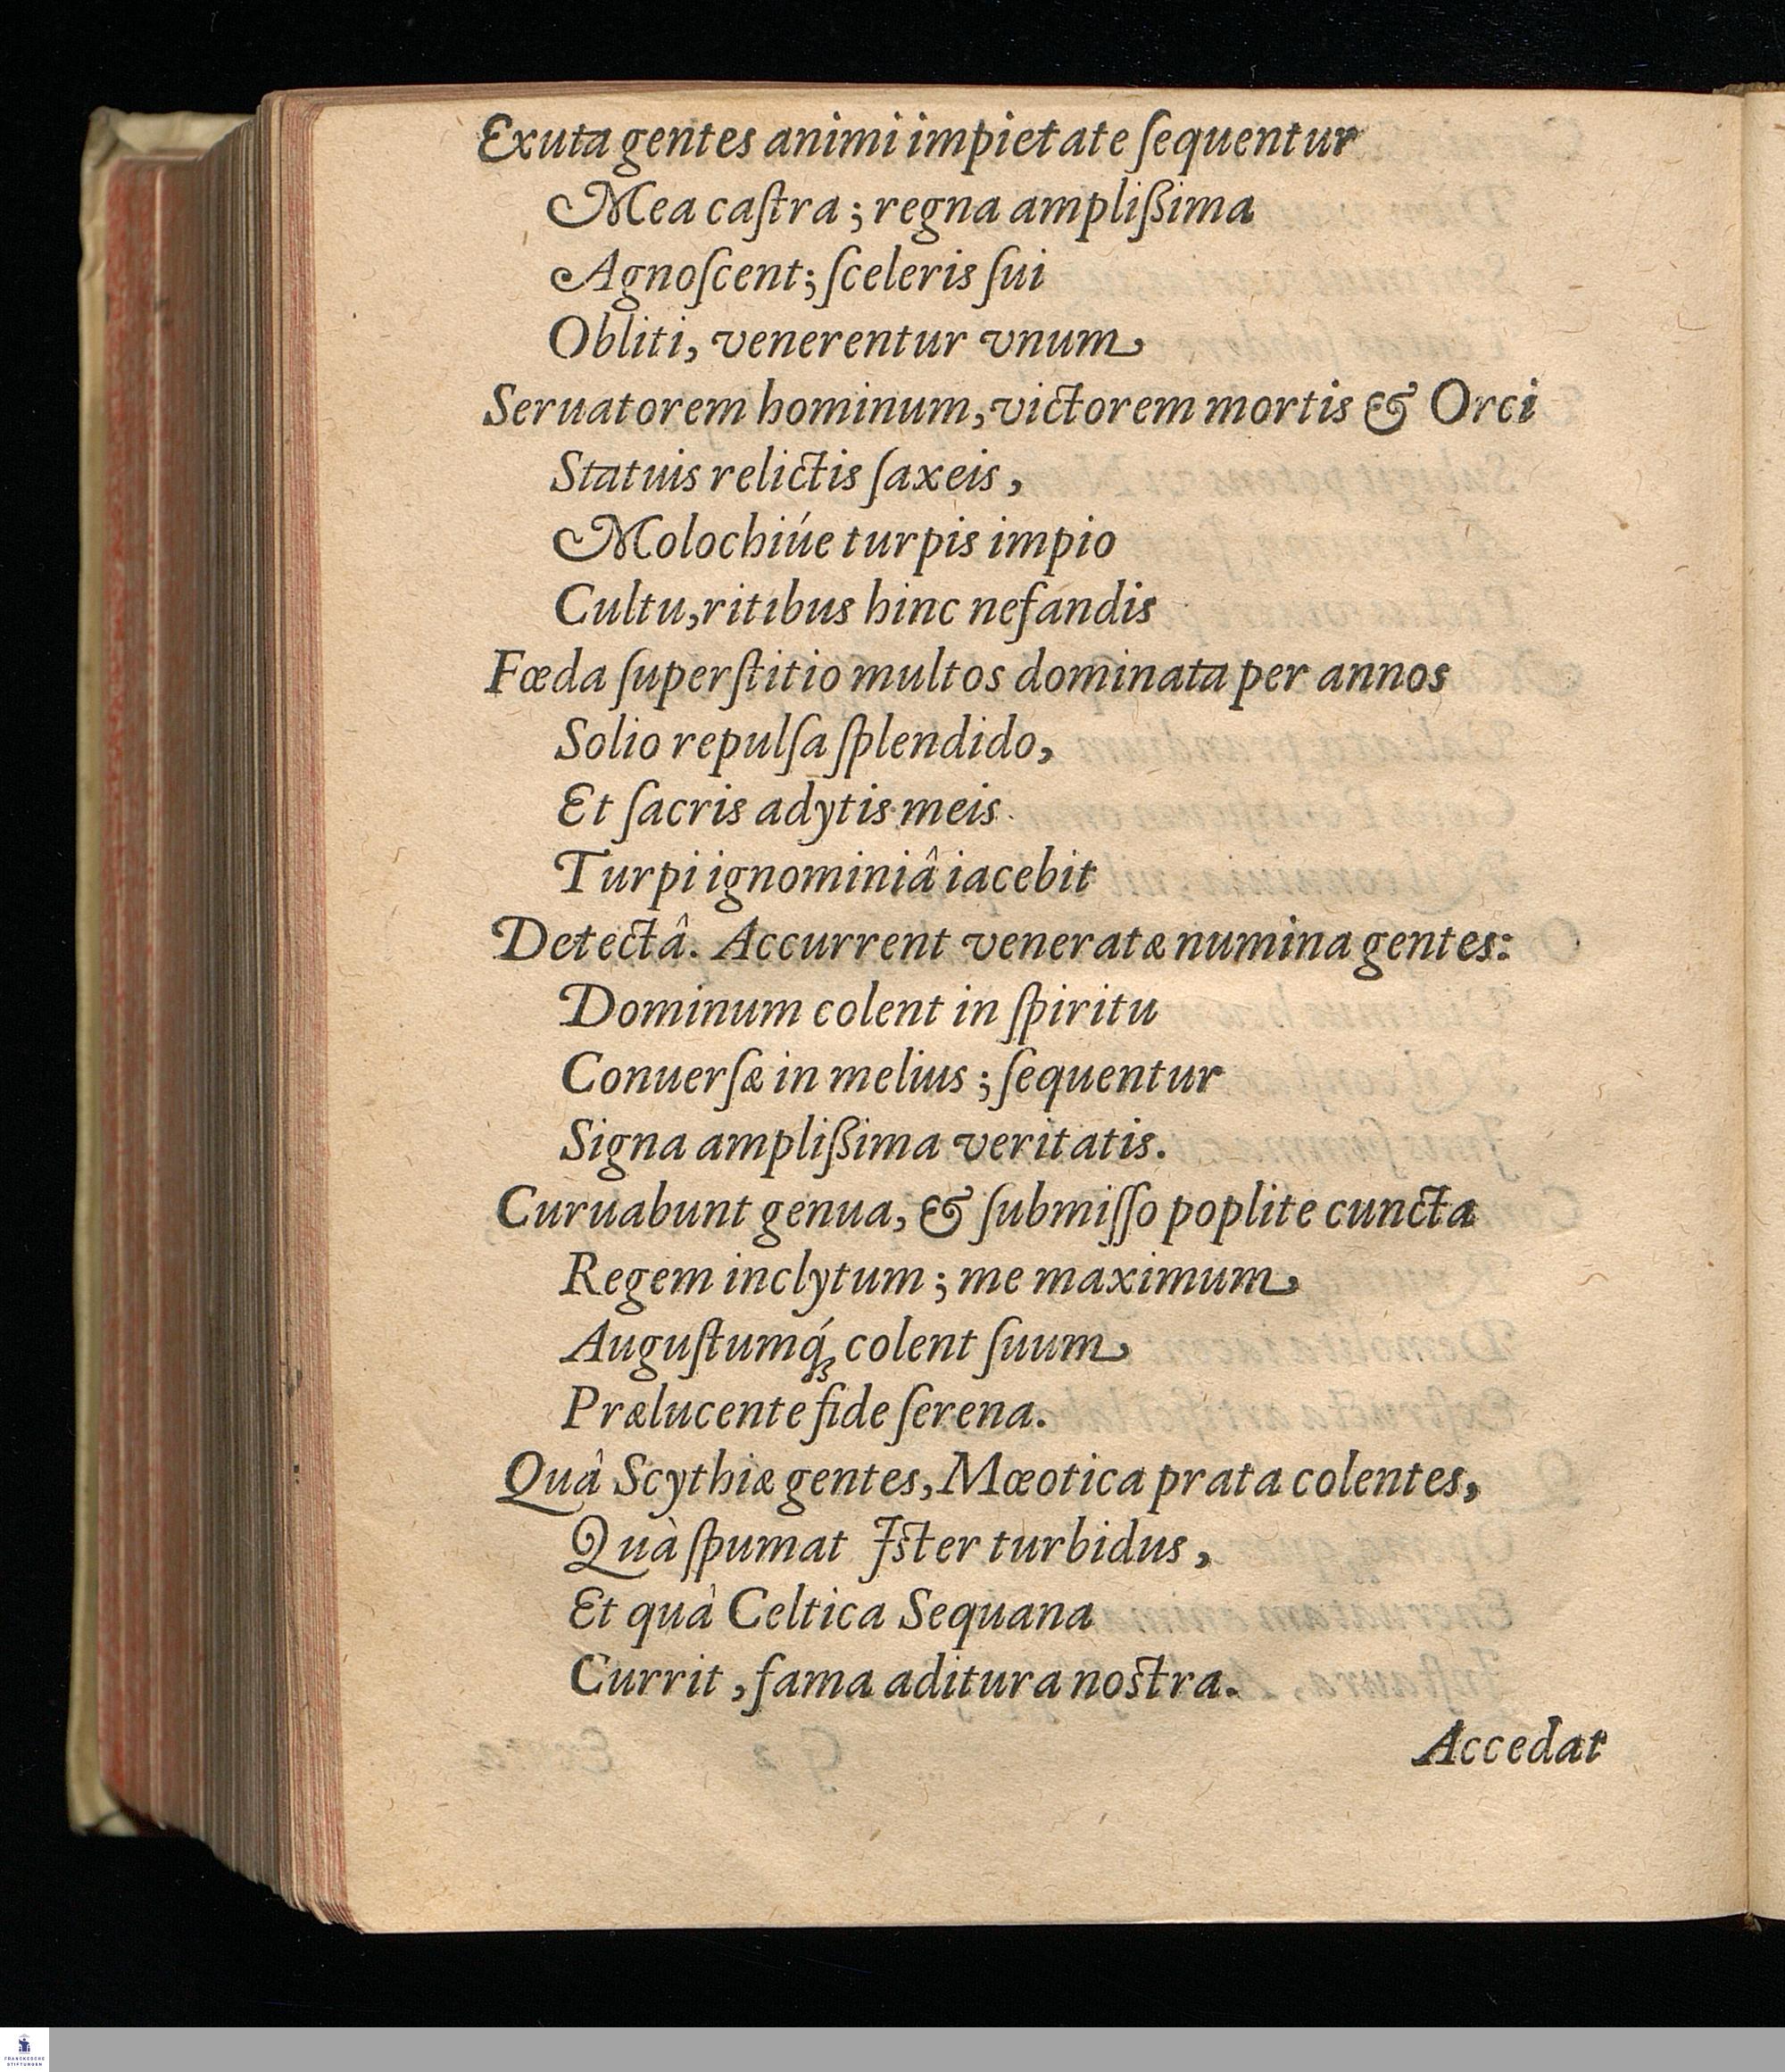 Exuta gentes animi impietate ſequentur
Mea caſtra; regna ampliſsima
Agnoſcent; ſceleris ſui
Obliti, venerentur vnum
Seruatorem hominum, victorem mortis & Orci
Statuis relictis ſaxeis,
Molochiúe turpis impio
Cultu, ritibus hinc nefandis
Fœda ſuperſtitio multos dominata per annos
Solio repulſa ſplendido,
Et ſacris adytis meis
Turpi ignominiâ iacebit
Detectâ. Accurrent veneratæ numina gentes:
Dominum colent in ſpiritu
Conuerſæ in melius; ſequentur
Signa ampliſsima veritatis.
Curuabunt genua, & ſubmiſſo poplite cuncta
Regem inclytum; me maximum
Auguſtumq́; colent ſuum
Prælucente fide ſerena.
Quâ Scythiæ gentes, Mœotica prata colentes,
Quà ſpumat Iſter turbidus,
Et quà Celtica Sequana
Currit, fama aditura noſtra.
Accedat
FRANCKESCHE
STIFTUNGEN